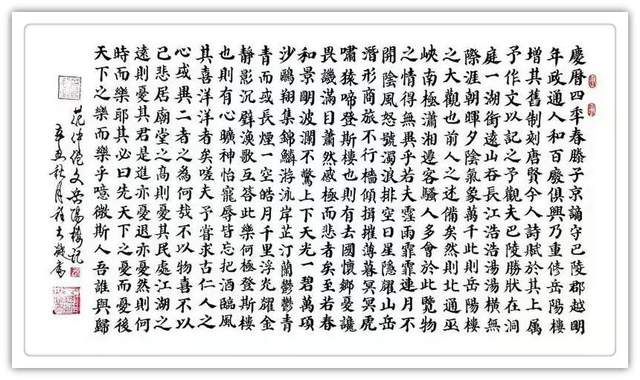 慶曆四年春滕子京謫守巴陵郡越明
年政通人和百廢俱興乃重修岳陽樓
增其舊制刻唐賢今人詩賦於其上屬
予作文以記之予觀夫巴陵勝狀在洞
庭一湖銜遠山吞長江浩浩湯湯橫無
際涯朝暉夕陰氣象萬千此則岳陽樓
之大觀也前人之述備矣然則北通巫
峽南極瀟湘遷客騷人多會於此覽物
之情得無異乎若夫霪雨霏霏連月不
開陰風怒號濁浪排空日星隱耀山岳
潛形商旅不行檣傾楫摧薄暮冥冥虎
嘯猿啼登斯樓也則有去國懷鄉憂讒
畏譏滿目蕭然感極而悲者矣至若春
和景明波瀾不驚上下天光一碧萬頃
沙鷗翔集錦鱗游泳岸芷汀蘭鬱鬱青
青而或長煙一空皓月千里浮光耀金
靜影沉璧漁歌互答此樂何極登斯樓
也則有心曠神怡寵辱皆忘把酒臨風
其喜洋洋者矣嗟夫予嘗求古仁人之
心或異二者之為何哉不以物喜不以
己悲居廟堂之高則憂其民處江湖之
遠則憂其君是進亦憂退亦憂然則何
時而樂耶其必曰先天下之憂而憂後
天下之樂而樂乎噫微斯人吾誰與歸
范仲淹文岳陽樓記
辛丑秋月書